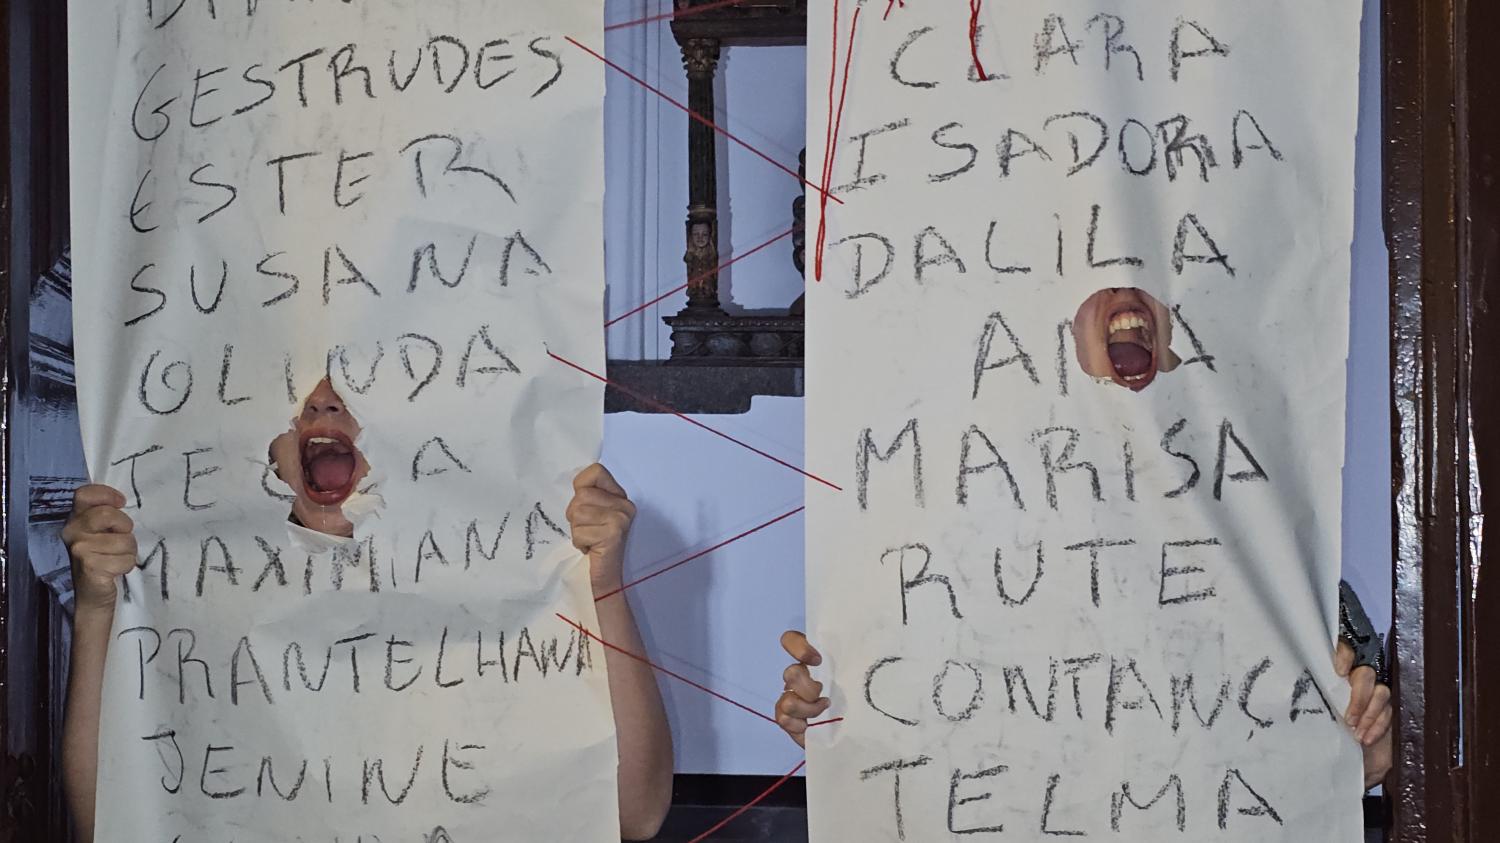 GESTRUDES
ESTER
SUSANA
OLINDA
MAXIMIANA
PRANTELHANA
JENINE
CLARA
ISADORA
DALILA
ANA
MARISA
RUTE
CONTANÇA
TELMA